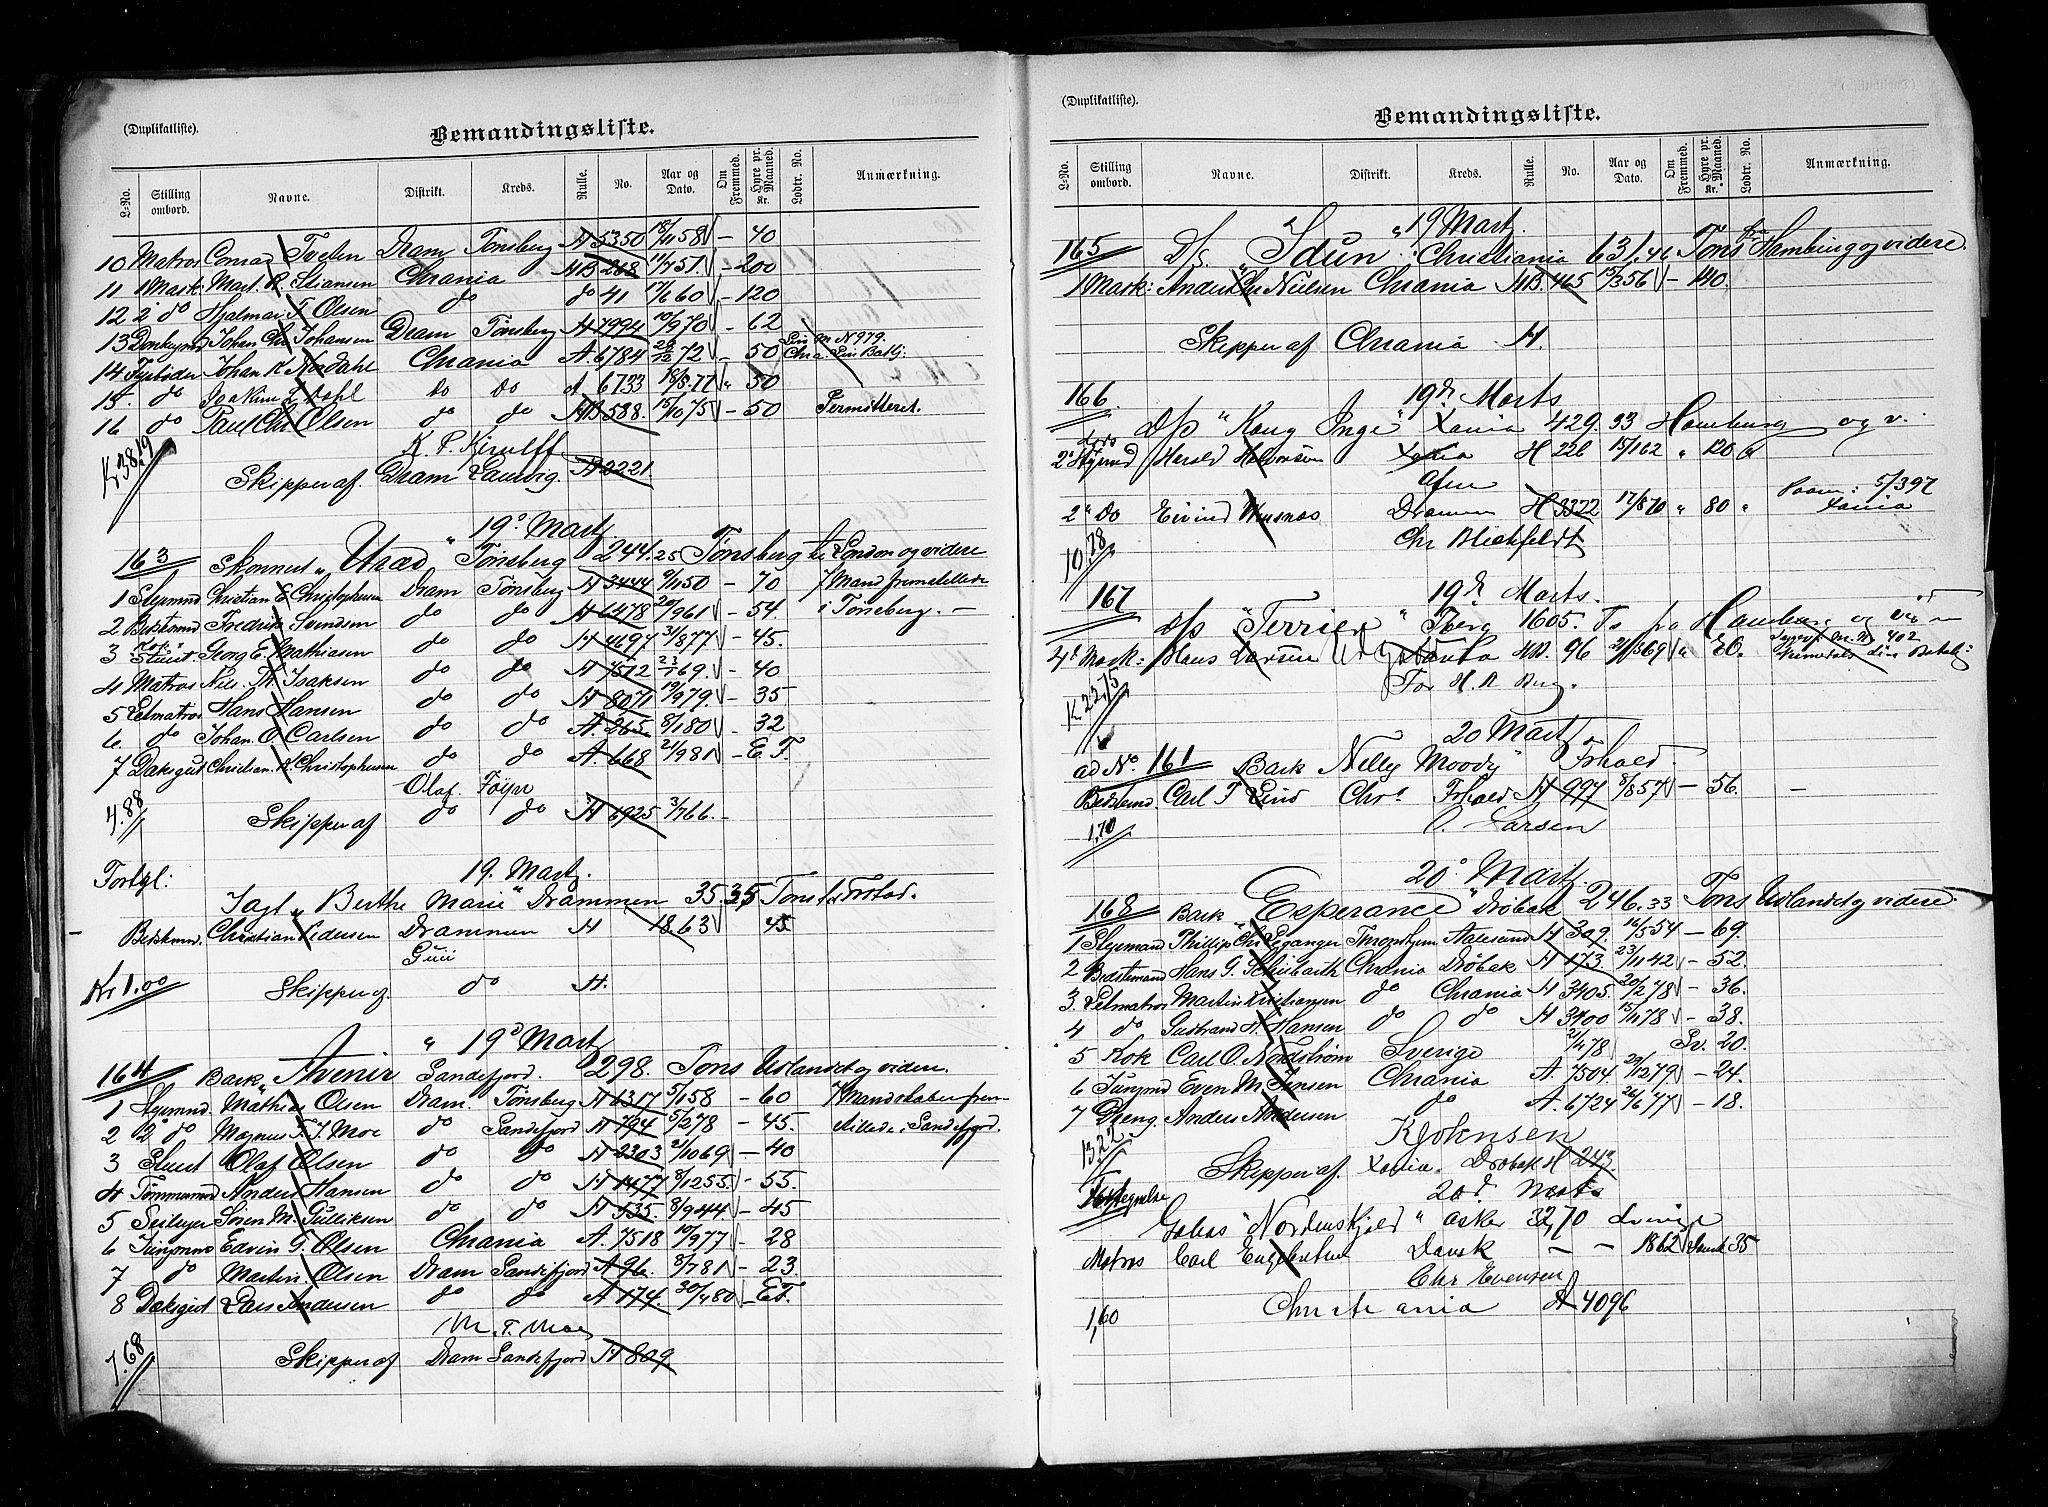 (Duplikatliste).
Bemandingsliste.
L-No. Stilling ombord. Navne. Distrikt. Kreds. Rulle. No. Aar og Dato. Om Fremmed. Hyre pr. Maaned. Kr. Lodtr. No. Anmærkning.
10 Matros Conrad Tveten Dram Tønsberg A 5350 18/11 58 – 40
11 1 Mask: Mart. R. Stiansen Chrania AB 268 11/7 51 – 200
12 2 do Hjalmar F. Olsen do do 41 17/6 60 – 120
13 Donkeymd Johan Chr Johansen Dram Tønsberg A 7994 10/9 70 – 62
14 Fyrbøder Johan K Nordahl Chrania A. 6784 26/12 72 – 50
15. do Joakim L Dahl do do A 6733 18/8 77 " 50
16 do Paul Chr Olsen do do AB 588. 15/10 75 – 50 Permitteret.
Kr 38,19
K. P. Kirulff
Skipper af. Dram Laurvig. A 2221
19d Martz
163 Skonnert "Uræd" Tønsberg 244.25 Tønsberg til London og videre
1 Styrmnd Christian E Christophersen Dram Tønsberg A 3444 9/11 50 – 70 7 Mand fremstillede
2 Bedstmnd Fredrik Svendsen do do A 6478 20/9 61 – 54. i Tønsberg. –
3 Kok & Stuert. Georg E. Mathiasen do do A 4697 31/8 77 – 45.
4 Matros Nils. M. Isaksen do do A 7512 23/1 69. – 40
5 Letmatros Hans Hansen do do A 8071 19/9 79. – 35
6 do Johan O. Carlsen do do A. 265 8/1 80 – 32
7 Dæksgut Christian. K. Christophersen do do A. 668 21/9 81 – E. F.
4.88
Olaf Föyn
Skipper af do do A 6925 3/7 66. –
Fortgl: 19. Martz.
Jagt "Berthe Marie" Drammen 35.35 Tons til Frstad.
Bedstmnd. Christian Pedersen Drammen A 1863 45.
Kr 1.00
Skipper af do A.
" 19d Martz
164 Bark "Avenir Sandefjord. 298. Tons Udlandet og videre.
1 Styrmnd. Mathias Olsen Dram. Tønsberg A 6317 5/1 58 – 60 7 Mandskaber frem-
2 2d do Magnus F. J. Moe do Sandefjord A 794 5/2 78 – 45. stillede i Sandefjord.
3 Stuert Olaf Olsen do do A 2303 21/10 69 – 40
4 Tømmermd Anders Hansen do do A 1477 8/12 55. – 55.
5 Seilmger Søren M. Gulliksen do do A 535. 8/9 44 – 45
6 Jungmnd Edvin G. Olsen Chrania A. 7518 10/9 77 – 28
7 do Martin Olsen Dram Sandefjord A 96. 8/7 81 – 23.
8 Dæksgut Lars Andersen do do A 174. 30/4 80 – E.F.
7.68
M. F. Moe
Skipper af Dram Sandefjord A 809
(Duplikatliste).
Bemandingsliste.
L-No. Stilling ombord. Navne. Distrikt. Kreds. Rulle. No. Aar og Dato. Om Fremmed. Hyre pr. Maaned. Kr. Lodtr. No. Anmærkning.
" 19 Martz
165 D/S. "Idun" Christiania 631.46 Tons fr Hamburg og videre.
1 Mask: Anders Chr Nielsen Chrania AB. 465 13/3 56 – 140.
Skipper af Chrania A.
166. 19d. Marts
D/S "Kong Inge" Xania 429.93 Hamburg og v.
2d Styrmd Harald Halvorsen Xania A 226 15/1 62 " 120
2d Do Eivind Drammen A 3322 17/8 70 " 80 " 5/3 97 Xania
10.78
Chr Blichfeldt
167 19d Marts.
D/S "Terrier" Tberg 1605. Ts fra Hamburg og
4d Mask: Hans Larsen AB. 96 21/3 69 "
K 22,75
For H. A.
20 Martz
ad No. 161 Bark Nelly Moody" Frhald.
Bedstmnd Carl F Lind Chra Frhald A 997 8/8 57 – 56. –
1.70
O. Larsen
20d Martz
168 Bark "Esperance" Drøbak 246.33 Tons Udlandet og videre.
1 Styrmand Phillip Chr Egganger Throndhjem Aalesund A 309. 16/5 54 – 69.
2 Bedstemand Hans G. Schibarth Chrania Drøbak A 173. 23/11 42 – 52.
3. Letmatros Martin Kristiansen do Chrania A 3405. 20/2 78 – 36.
4 do Gustrand H. Hansen do do A 3400 15/11 78 – 38.
5 Kok Carl O. Nordstrøm Sverige 21/4 78 Sv. 20.
6 Jungmnd Even M. Jensen Chrania A. 7504. 29/12 79. – 24.
7 Dreng. Anders Andersen do A. 6724 26/6 77 – 18.
13.22
K Johnsen
Skipper af. Xania. Drøbak A 243.
Fortegnelse 20d. Marts
Galeas "Nordenskjold" Asker 32,70 Sverige
Matros Carl Engebretsen Dansk – – 1862 Dansk 35
Chr Evensen
1,60 Christiania A 4096